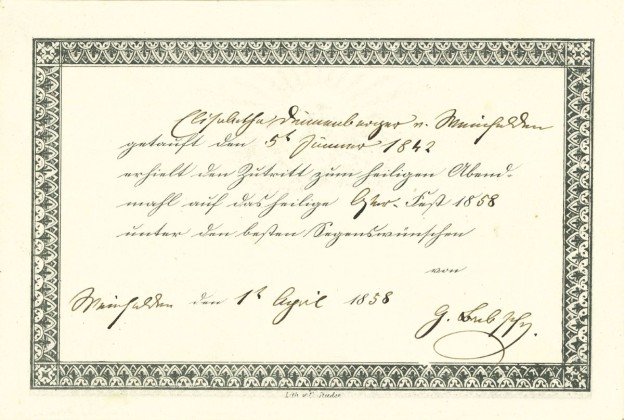 Elisabetha Dünnenberger v. Weinfelden
getauft den 5t Jänner 1842
erhielt den Zutritt zum heiligen Abend-
mahl auf das heilige Oster- Fest 1858
unter den besten Segenswünschen
von
Weinfelden den 1t April 1858
G.
Lith. v.